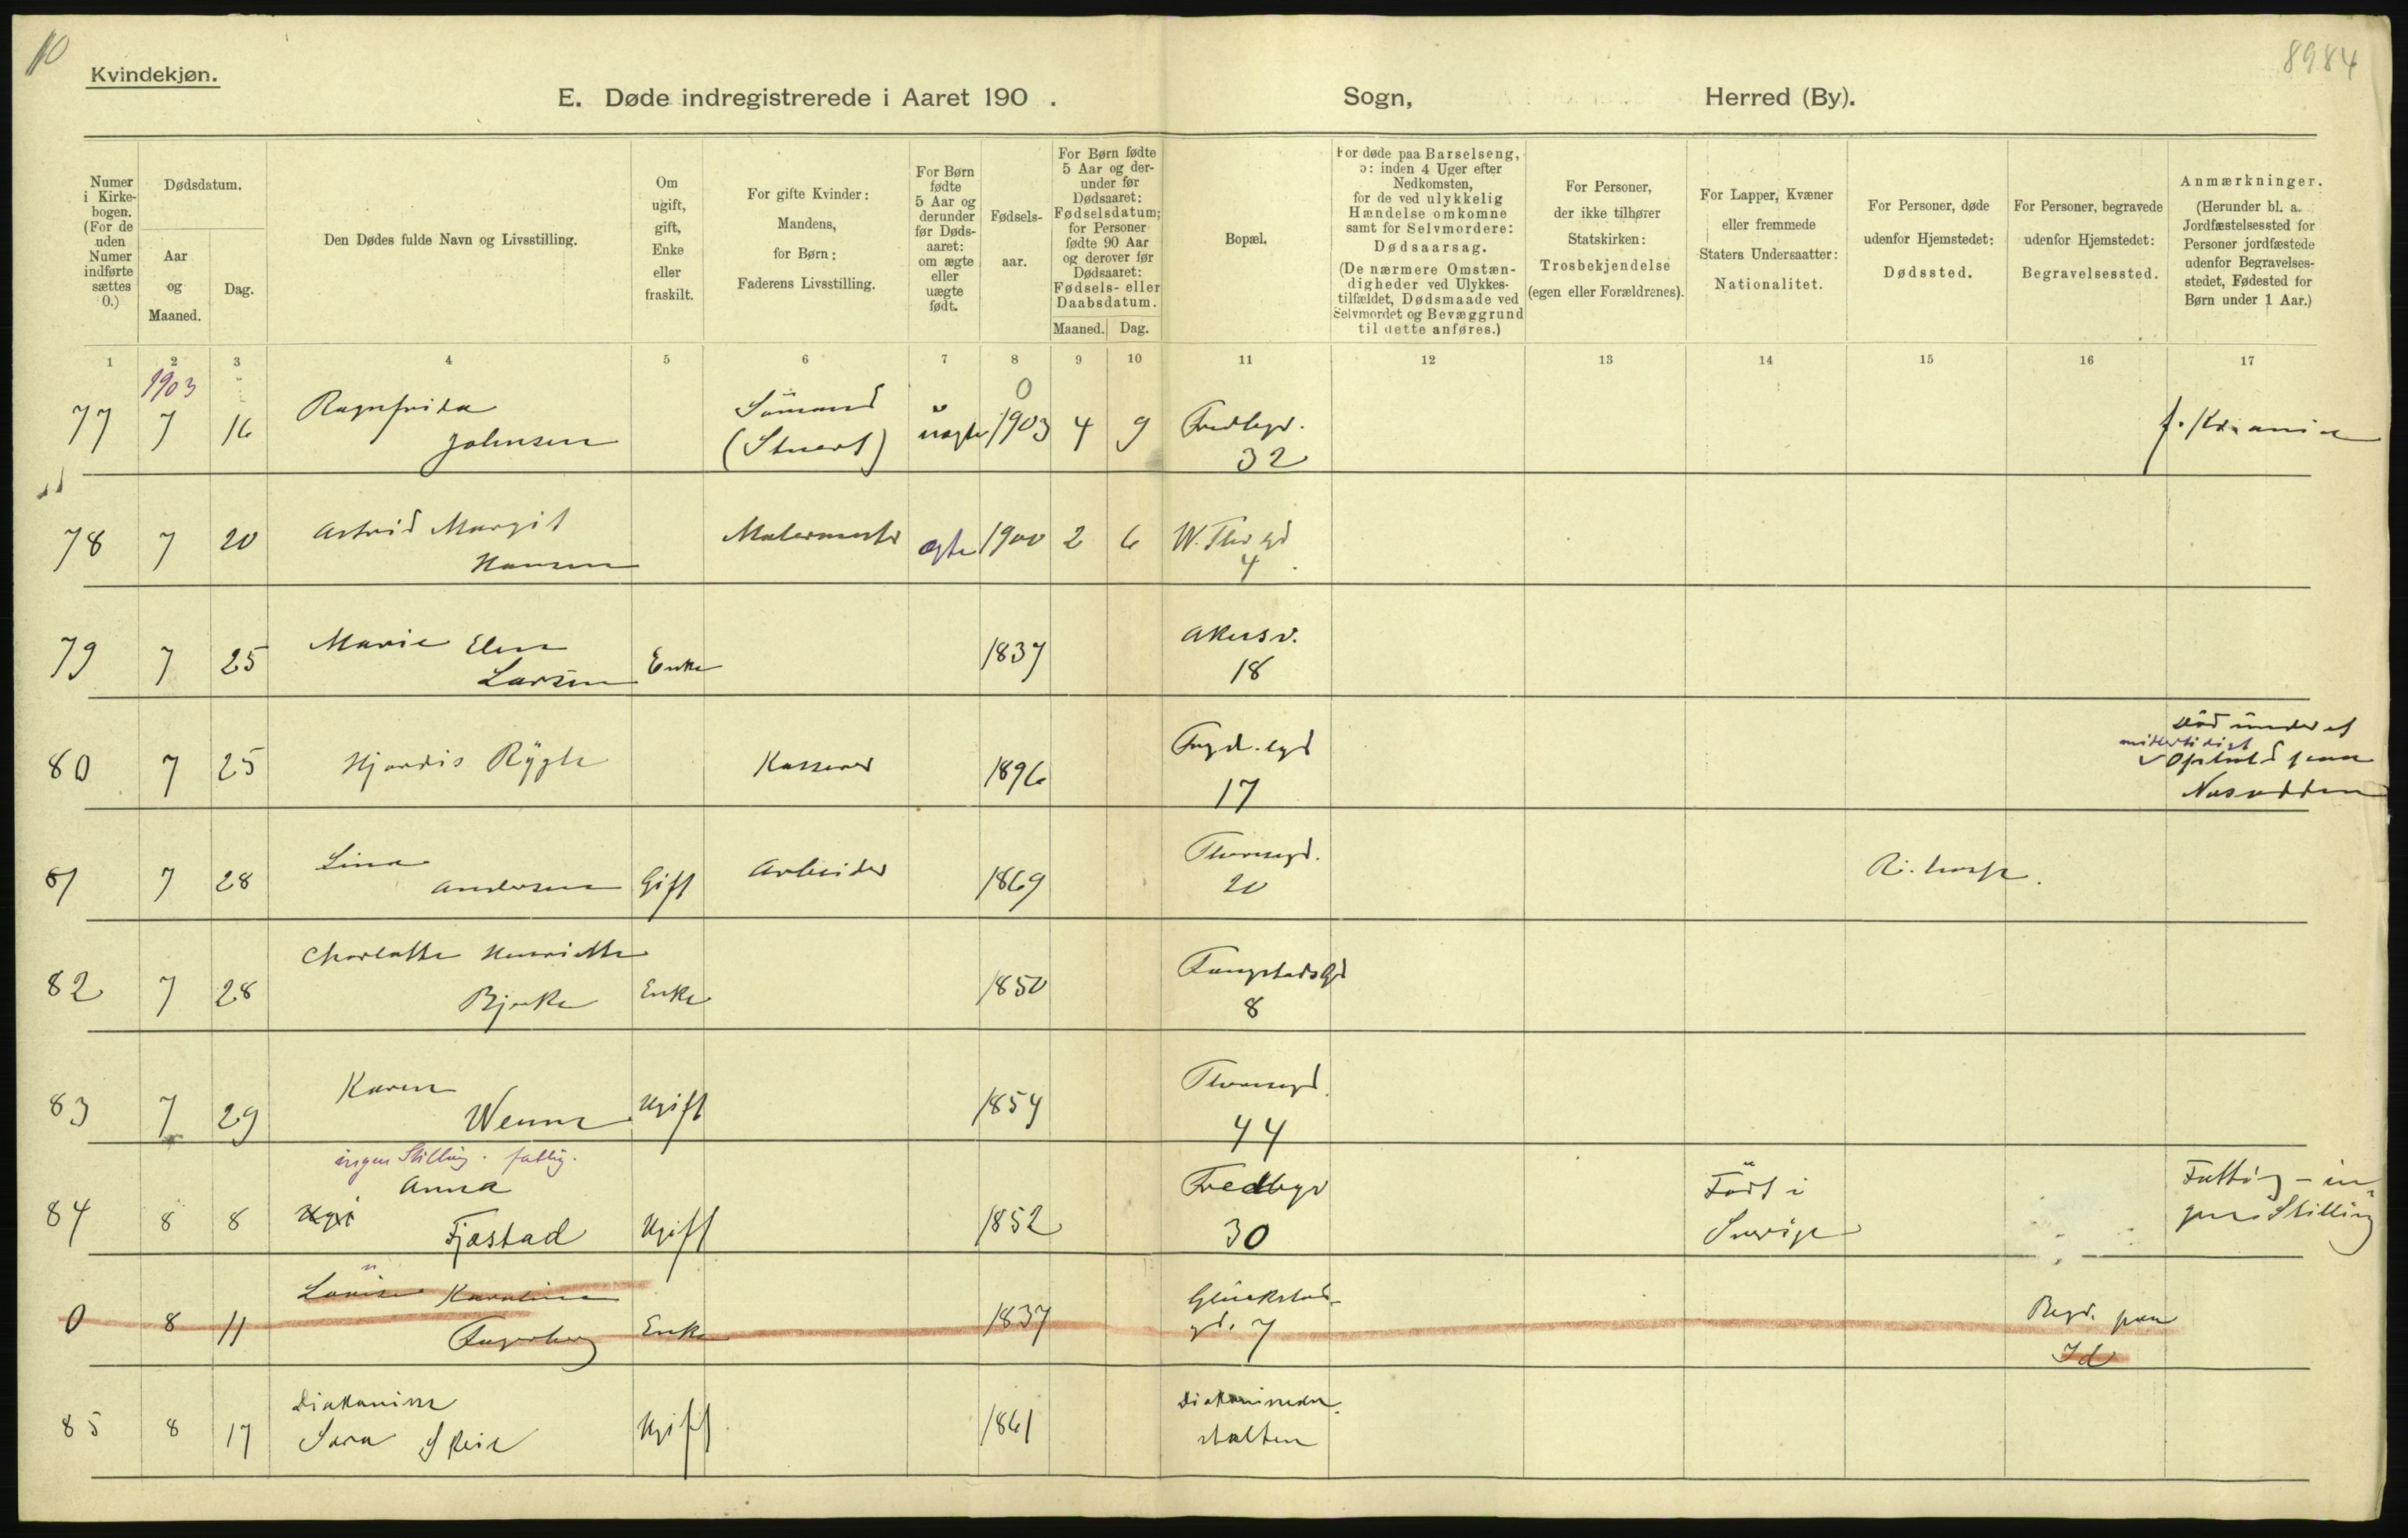 10
8984
Kvindekjøn.
E. Døde indregistrerede i Aaret 190 . Sogn, Herred (By).
Numer i Kirkebogen. (For de uden Numer indførte sættes 0.)
Dødsdatum.
Aar og Maaned.
Dag.
Den Dødes fulde Navn og Livsstilling.
Om ugift, gift, Enke eller fraskilt.
For gifte Kvinder: Mandens, for Børn: Faderens Livsstilling.
For Børn fødte 5 Aar og derunder før Dødsaaret: om ægte eller uægte født.
Fødselsaar.
For Børn fødte 5 Aar og derunder før Dødsaaret: Fødselsdatum; for Personer fødte 90 Aar og derover før Dødsaaret: Fødsels- eller Daabsdatum.
Maaned. Dag.
Bopæl.
For døde paa Barselseng, ɔ: inden 4 Uger efter Nedkomsten, for de ved ulykkelig Hændelse omkomne samt for Selvmordere: Dødsaarsag. (De nærmere Omstændigheder ved Ulykkestilfældet, Dødsmaade ved Selvmordet og Bevæggrund til dette anføres.)
For Personer, der ikke tilhører Statskirken: Trosbekjendelse (egen eller Forældrenes).
For Lapper, Kvæner eller fremmede Staters Undersaatter: Nationalitet.
For Personer, døde udenfor Hjemstedet: Dødssted.
For Personer, begravede udenfor Hjemstedet: Begravelsessted.
Anmærkninger. (Herunder bl. a. Jordfæstelsessted for Personer jordfæstede udenfor Begravelsesstedet, Fødested for Børn under 1 Aar.)
1 2 3 4 5 6 7 8 9 10 11 12 13 14 15 16 17
1903
0
77 7 16 Ragnfrida Johnsen Sömand (Stuert) uægte 1903 4 9 Fredbgd. 32 f. Kr.ania
78 7 20 Astrid Margit Hansen Malermester ægte 1900 2 6 W. Thr gd 4
79 7 25 Marie Elen Larsen Enke 1837 Akersv. 18
80 7 25 Hjördis Rygh Kasserer 1896 17 Död under et midlertidigt Ophold paa Nesodden
81 7 28 Lina Andersen Gift Arbeider 1869 Thorsgd. 20 Ri.hosp.
82 7 28 Charlotte Henriette Bjerke Enke 1850 8
83 7 29 Karen Wenns Ugift 1854 Thorsgd. 44
ingen Stilling. fattig.
84 8 8 Anna Fjæstad Ugift 1852 Fredbgd 30 Födt i Sverige Fattig - ingen Stilling
0 8 11 Louise Karoline Fagerberg Enke 1837 Glückstadgd. 7 Begr. paa Id
85 8 17 Diakonisse Sara Skeie Ugift 1861 Diakonissean- stalten